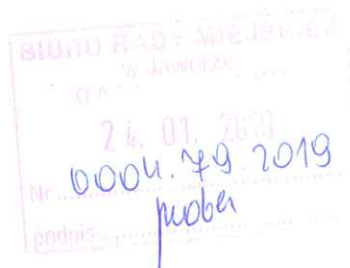 BIURO RADY MIEJSKIEJ
w Jaworze
24. 01. 2019
Nr 0004.79.2019
podpis